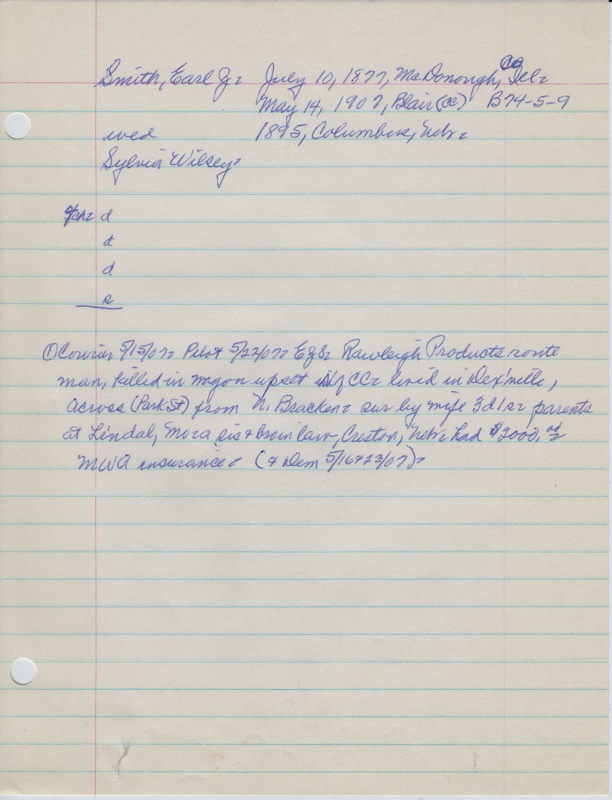 Co
Smith, Earl J. July 10, 1877, McDonough, Ill.
May 14, 1907, Blair (CC) B74-5-9
wed 1895, Columbus, Nebr.
Sylvia Wilsey.
4ch. d
d
d
s
① Courier 5/15/07. Pilot 5/22/07. EJS. Rawleigh Products route
man, killed in wagon upset of CC. lived in Dex'ville,
across (Park St) from N. Bracken. sur by wife 3d1s. parents
at Lindal, Mo. a sis & bro in law, Creston, Nebr. had $2000.
MWA insurance. (& Dem 5/16&23/07).